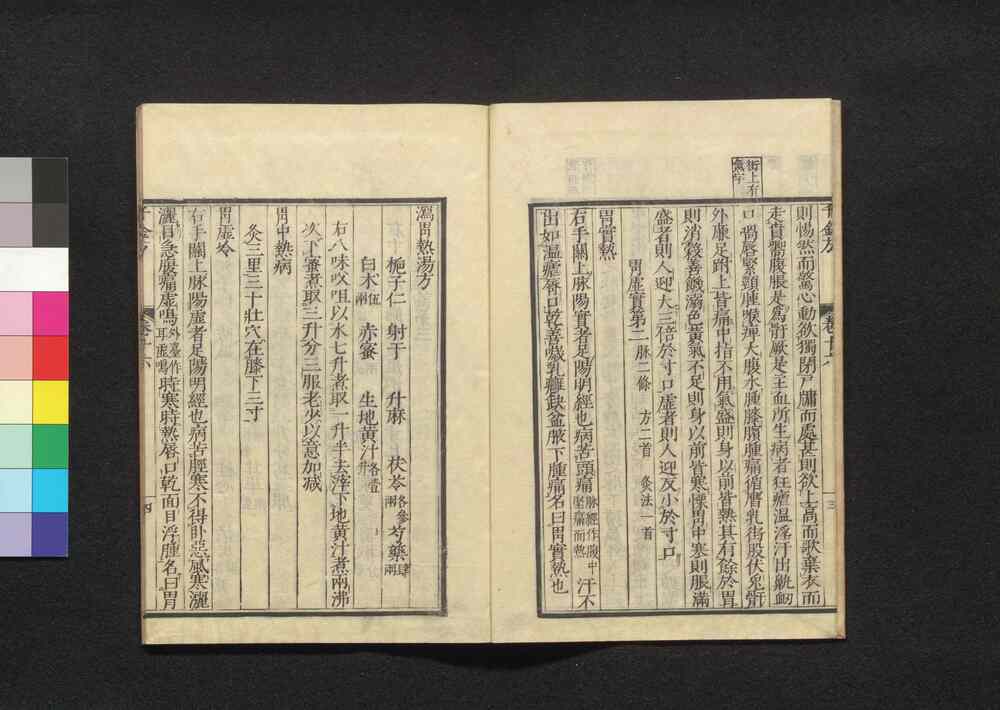 街上有
無字
千金方
卷十六
三
則惕然而驚心動欲獨閉戶牖而處甚則欲上高而歌棄衣而
走賁嚮腹脹是為骭厥是主血所生病者狂瘧溫淫汗出鼽衂
口喎唇緊頸腫喉痹大腹水腫膝臏腫痛循膺乳街股伏兔骭
外廉足跗上皆痛中指不用氣盛則身以前皆熱其有餘於胃
則消穀善飢溺色黃氣不足則身以前皆寒慄胃中寒則脹滿
盛者則人迎大三倍於寸口虛者則人迎反小於寸口
胃虛實第二 脉二條 方二首 灸法二首
胃實熱
右手關上脉陽實者足陽明經也病苦頭痛脉經作腹中堅痛而熱汗不
出如溫瘧唇口乾善噦乳癰缺盆腋下腫痛名曰胃實熱也
瀉胃熱湯方
梔子仁 射干 升麻 茯苓各參兩 芍藥肆兩
白朮伍兩 赤蜜 生地黃汁各壹升
右八味㕮咀以水七升煮取一升半去滓下地黃汁煮兩沸
次下蜜煮取三升分三服老少以意加减
胃中熱病
灸三里三十壯穴在膝下三寸
胃虛冷
右手關上脉陽虛者足陽明經也病苦脛寒不得卧惡風寒灑
灑目急腹痛虛鳴外臺作耳虛鳴時寒時熱唇口乾面目浮腫名曰胃
千金方
卷十六
四